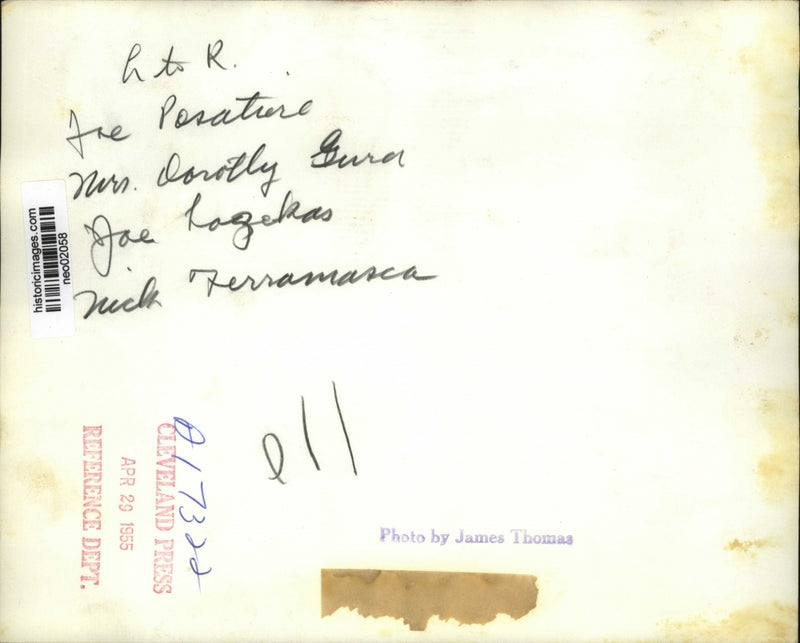 L to R.
Joe Posature
Mrs. Dorothy Gura
Joe Lozekas
Nick Ferramasca
historicimages.com
neo02058
CLEVELAND PRESS
APR 29 1955
REFERENCE DEPT.
Photo by James Thomas